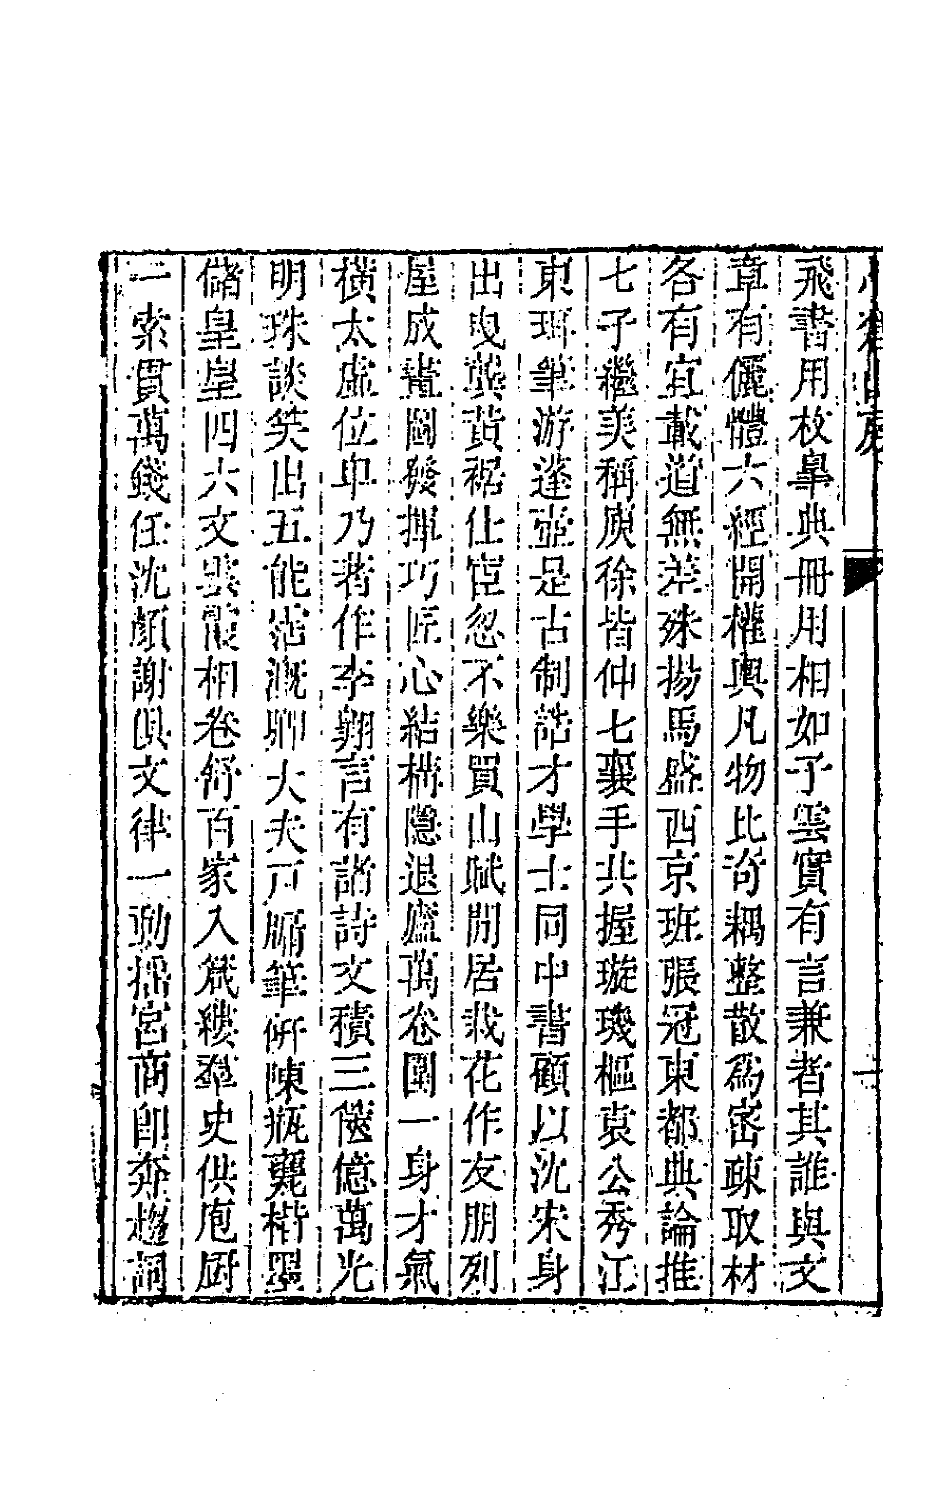 小倉山房
一
飛書用枚皐典冊用相如子雲實有言兼者其誰與文
章有儷體六經開權輿凡物比奇耦整散爲密疎取材
各有宜載道無差殊揚馬盛西京班張冠東都典論推
七子繼美稱庾徐皆伸七襄手共握璇璣樞袁公秀江
東珥筆游蓬壺是古制誥才學士同中書顧以沈宋身
出曳龔黃裾仕宦忽不樂買山賦閒居栽花作友朋列
屋成畫圖發揮巧匠心結構隱退廬萬卷圍一身才氣
橫太虛位卑乃著作李翱言有諸詩文積三篋億萬光
明珠談笑出五能沾溉卿大夫戸牖筆研陳瓶甖楮墨
儲皇皇四六文雲霞相卷舒百家入箴縷羣史供庖厨
一索貫萬錢任沈顏謝俱文律一動搖宮商卽奔趨詞